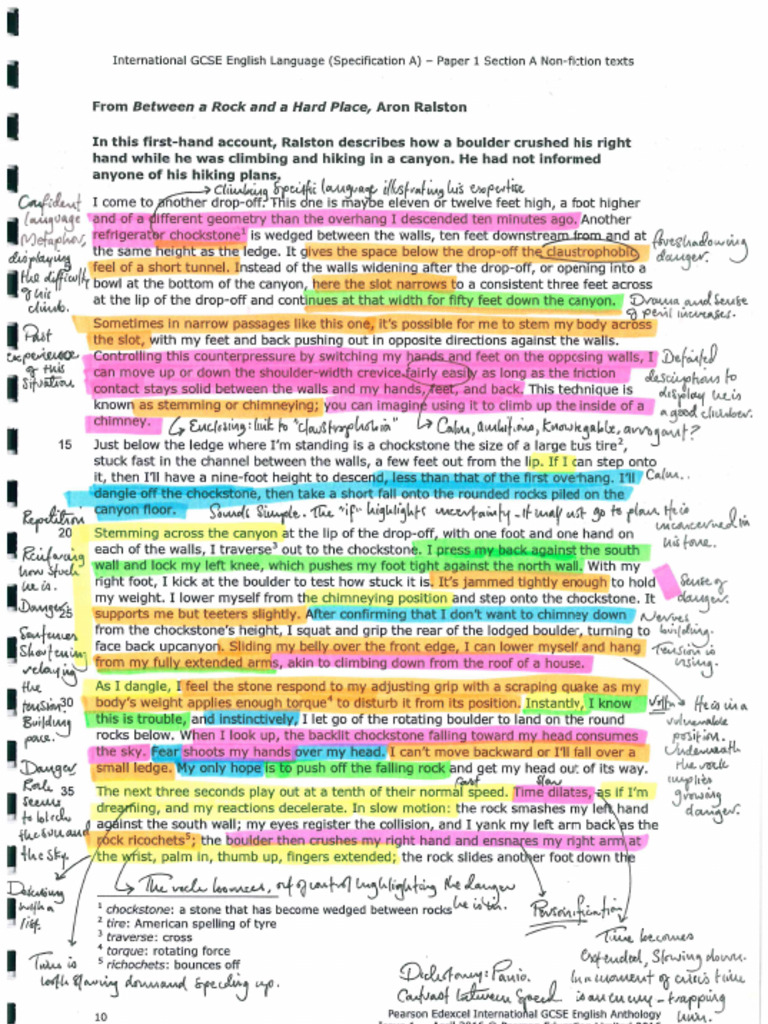 International GCSE English Language (Specification A) – Paper 1 Section A Non-fiction texts
From Between a Rock and a Hard Place, Aron Ralston
In this first-hand account, Ralston describes how a boulder crushed his right
hand while he was climbing and hiking in a canyon. He had not informed
anyone of his hiking plans.
Climbing specific language illustrating his expertise
I come to another drop-off. This one is maybe eleven or twelve feet high, a foot higher
and of a different geometry than the overhang I descended ten minutes ago. Another
refrigerator chockstone1 is wedged between the walls, ten feet downstream from and at
the same height as the ledge. It gives the space below the drop-off the claustrophobic
feel of a short tunnel. Instead of the walls widening after the drop-off, or opening into a
bowl at the bottom of the canyon, here the slot narrows to a consistent three feet across
at the lip of the drop-off and continues at that width for fifty feet down the canyon.
Confident
language
Metaphor,
displaying
the difficulty
of his
climb.
foreshadowing
danger.
Drama and sense
of peril increases.
Sometimes in narrow passages like this one, it's possible for me to stem my body across
the slot, with my feet and back pushing out in opposite directions against the walls.
Controlling this counterpressure by switching my hands and feet on the opposing walls, I
can move up or down the shoulder-width crevice fairly easily as long as the friction
contact stays solid between the walls and my hands, feet, and back. This technique is
known as stemming or chimneying; you can imagine using it to climb up the inside of a
chimney.
Past
experience
of this
situation
Detailed
descriptions to
display he is
a good climber.
Enclosing: link to "claustrophobia"
Calm, ambitious, knowledgable, arrogant?
15
Just below the ledge where I'm standing is a chockstone the size of a large tus tire2,
stuck fast in the channel between the walls, a few feet out from the lip. If I can step onto
it, then I'll have a nine-foot height to descend, less than that of the first overhang. I'll
dangle off the chockstone, then take a short fall onto the rounded rocks piled on the
canyon floor.
Calm..
Sounds Simple. The "if" highlights uncertainty - it may not go to plan. He is
unconcerned in
his tone.
20
Stemming across the canyon at the lip of the drop-off, with one foot and one hand on
each of the walls, I traverse3 out to the chockstone. I press my back against the south
wall and lock my left knee, which pushes my foot tight against the north wall. With my
right foot, I kick at the boulder to test how stuck it is. It's jammed tightly enough to hold
my weight. I lower myself from the chimneying position and step onto the chockstone. It
25
supports me but teeters slightly. After confirming that I don't want to chimney down
from the chockstone's height, I squat and grip the rear of the lodged boulder, turning to
face back upcanyon. Sliding my belly over the front edge, I can lower myself and hang
from my fully extended arms, akin to climbing down from the roof of a house.
Repetition
Reinforcing
how stuck
he is.
Danger.
Sentences
Shortening
relaying
the
tension.
Building
pace.
Sense of
danger.
Nerves
building.
Tension is
rising.
As I dangle, I feel the stone respond to my adjusting grip with a scraping quake as my
30
body's weight applies enough torque4 to disturb it from its position. Instantly, I know
this is trouble, and instinctively, I let go of the rotating boulder to land on the round
rocks below. When I look up, the backlit chockstone falling toward my head consumes
the sky. Fear shoots my hands over my head. I can't move backward or I'll fall over a
small ledge. My only hope is to push off the falling rock and get my head out of its way.
He is in a
vulnerable
position.
Underneath
the rock
implies
growing
danger.
Danger
Rock
seems
to block
the sun and
the sky.
35
fast
slow
The next three seconds play out at a tenth of their normal speed. Time dilates, as if I'm
dreaming, and my reactions decelerate. In slow motion: the rock smashes my left hand
against the south wall; my eyes register the collision, and I yank my left arm back as the
rock ricochets5; the boulder then crushes my right hand and ensnares my right arm at
the wrist, palm in, thumb up, fingers extended; the rock slides another foot down the
The rock bounces, out of control highlighting the danger
he is in.
with a
list.
Personification
1 chockstone: a stone that has become wedged between rocks
2 tire: American spelling of tyre
3 traverse: cross
4 torque: rotating force
5 richochets: bounces off
Time is
both slowing down and speeding up.
Time becomes
extended, slowing down.
In a moment of crisis time
is an enemy - trapping
him.
Dichotomy: Panic.
Contrast between speed
10
Pearson Edexcel International GCSE English Anthology